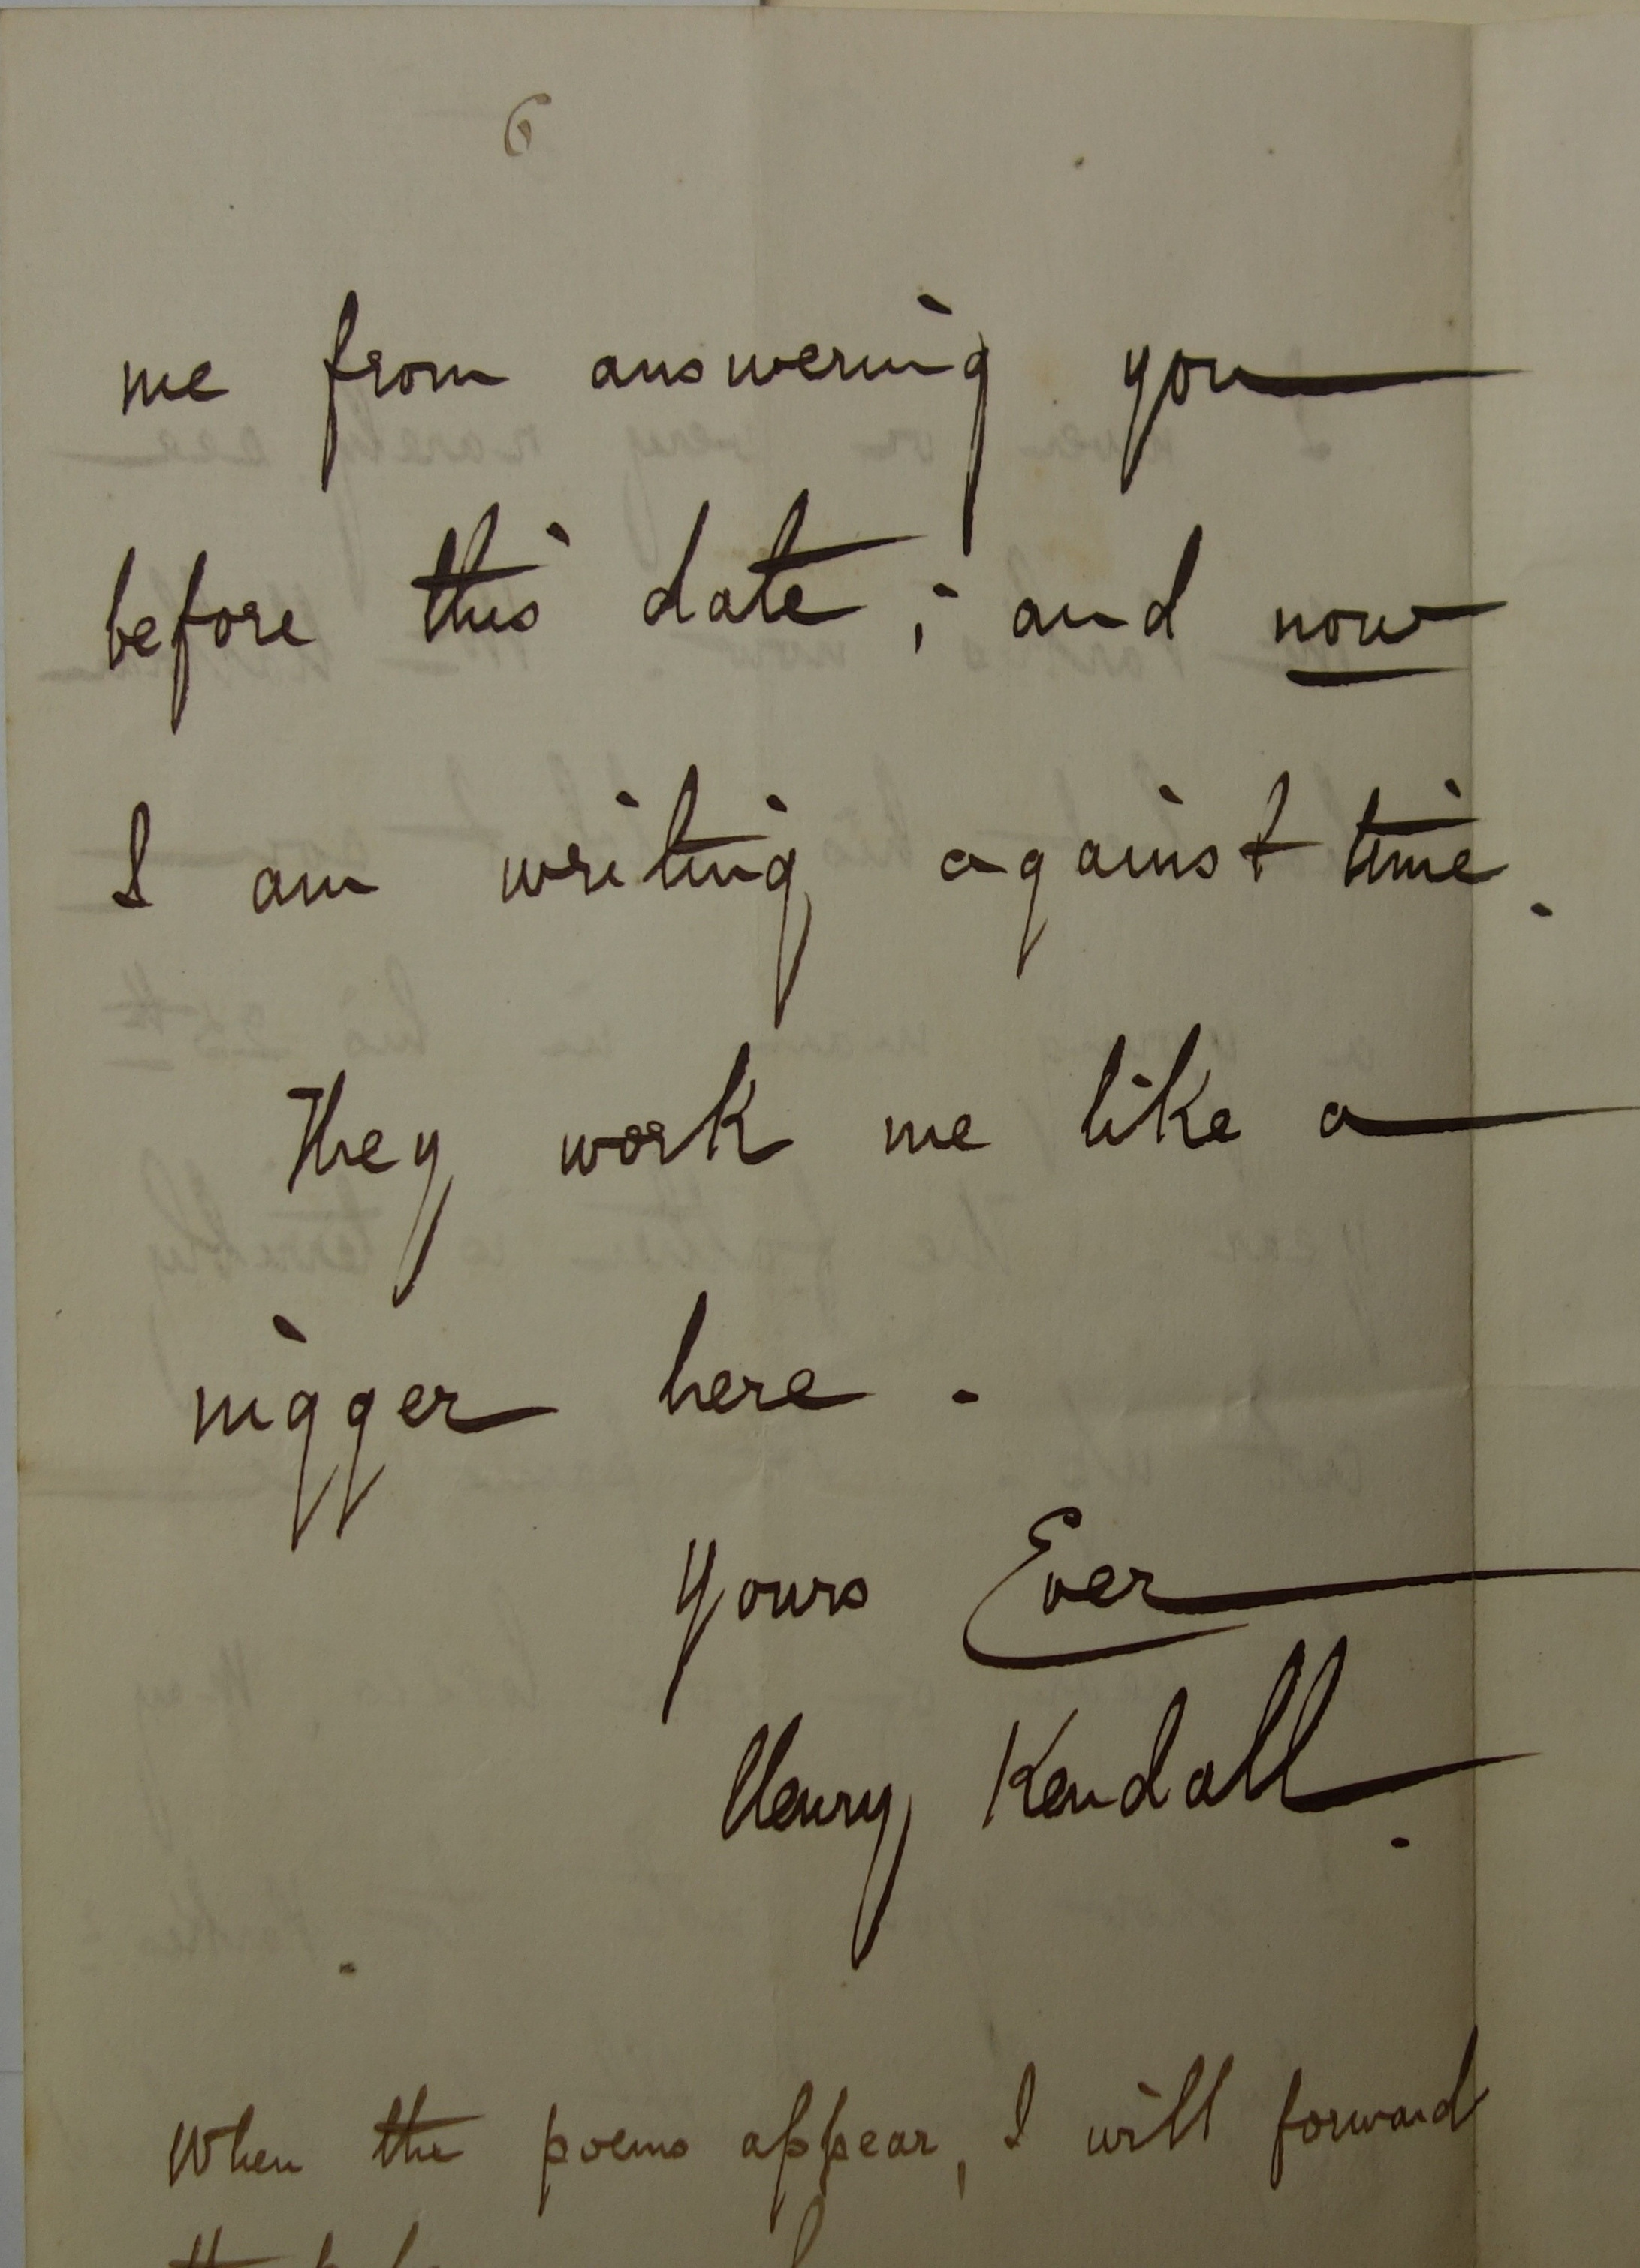 6
me from answering you
before this date; and now
I am writing against time.
They work me like a
nigger here.
Yours Ever
Henry Kendall.
When the poems appear, I will forward